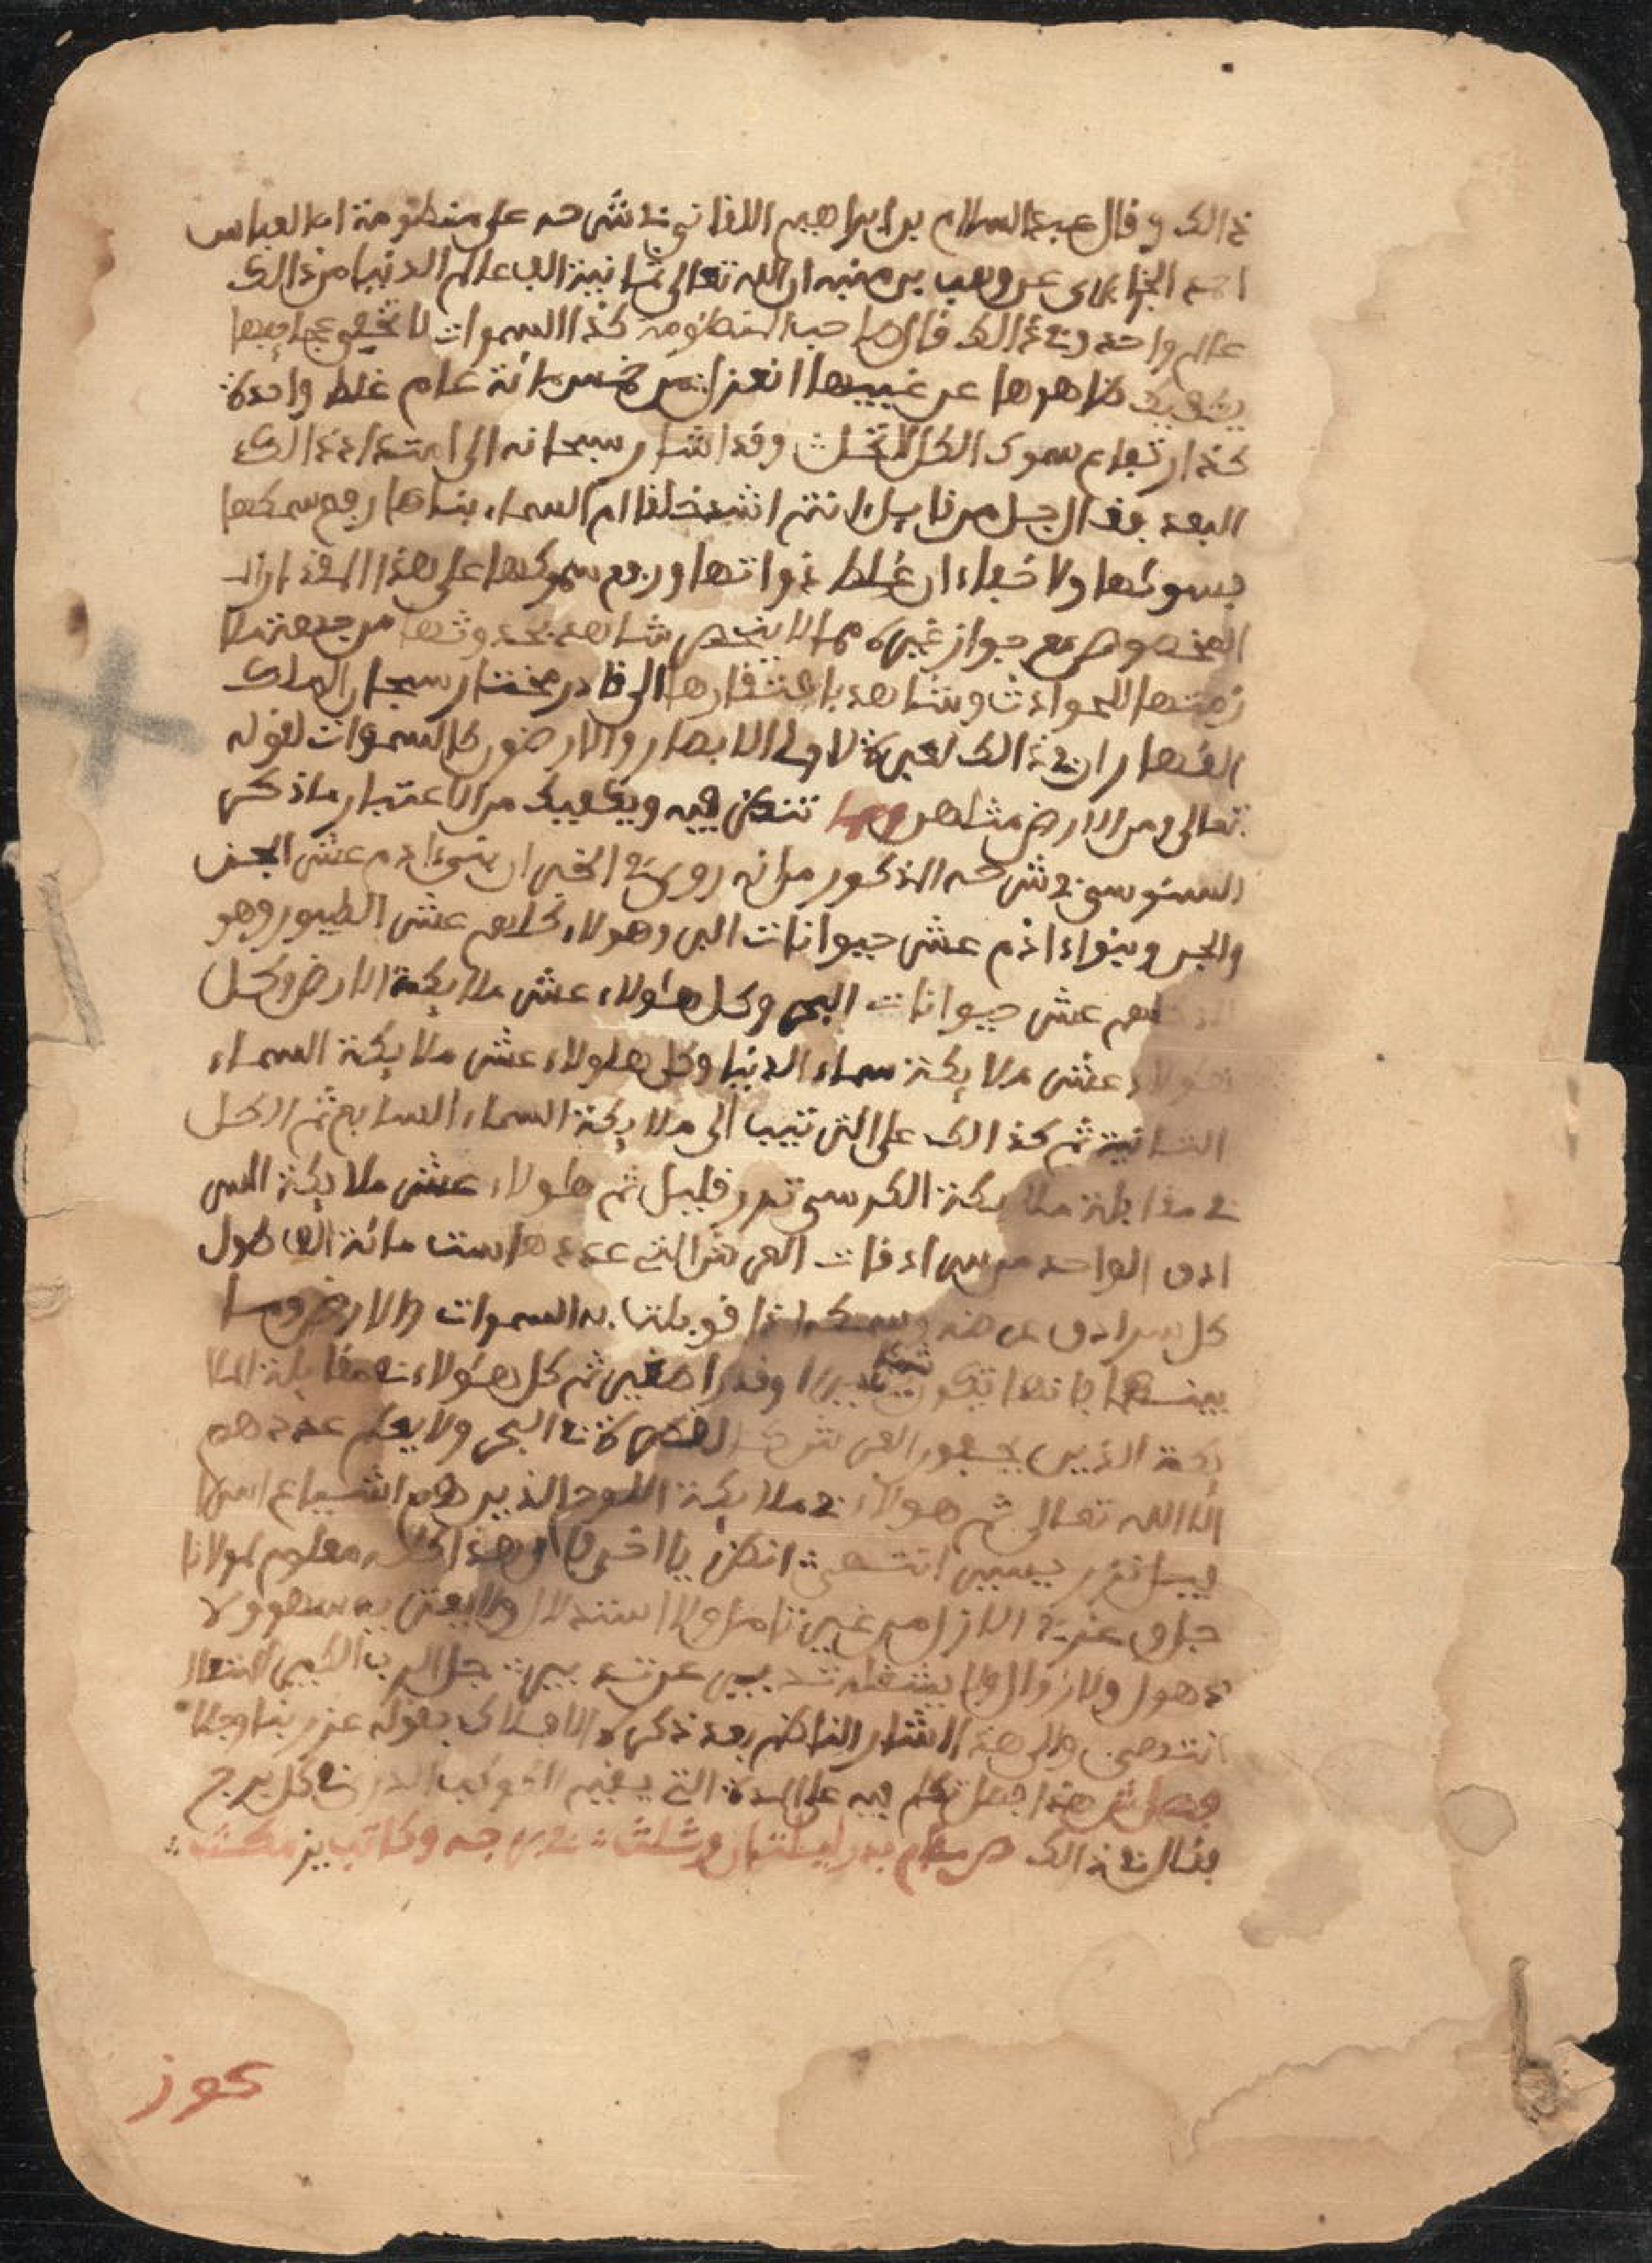 ذالك وقال عبد السلام بن ابراهيم اللقاني في شرحه على منظومة ابي العباس
احمد الجزايري عن وهب بن منبه ان لله تعالى ثمانية الف عالم الدنيا من ذالك
عالم واحد وفي ذالك قال صاحب المنظومة كذا السموات لا تحصى عجايبها
يكفيك ظاهرها عن غيبها انعزلت من خمس مائة عام غلظ واحدة
كذا ارتفاع سموك الكل لا تخلت وقد اشار سبحانه الى امتداد ذالك
البعد فقال جل من قايل اانتم اشد خلقا ام السماء بناها رفع سمكها
فسويها ولا خفاء ان غلظ ذواتها ورفع سموكها على هذا المقدار
المخصوص مع جواز غيره مما لا ينحصر شاهد بحدوثها من جهة ملا
زمتها للحوادث وشاهد بافتقارها الى قادر مختار سبحان الملك
القهار ان في ذالك لعبرة لاولى الابصار والارضون كالسموات لقوله
تعالى ومن الارض مثلهن ومما تنظر فيه ويكفيك من الاعتبار ما ذكر
السنوسي في شرحه المذكور من انه روي في الخبر ان بني ءادم عشر الجن
والجن وبنواء ادم عشر حيوانات البر وهولاء كلهم عشر الطيور وهو
لاء كلهم عشر حيوانات البحر وكل هؤلاء عشر ملايكة الارض وكل
هولاء عشر ملايكة سماء الدنيا وكل هاولاء عشر ملايكة السماء
الثانية ثم كذالك على الترتيب الى ملايكة السماء السابع ثم الكل
في مقابلة ملايكة الكرسي نزر قليل ثم هاولاء عشر ملايكة السر
ادق الواحد من سرادقات العرش التي عددها ست مائة الف طول
كل سرادق عرضه وسمكه اذا قوبلت به السموات والارض وما
بينهما فانها تكون شيئا يسيرا وقدرا صغيرا ثم كل هؤلاء في مقابلة الملا
يكة الذين يحفون العرش كالقطرة في البحر ولا يعلم عددهم
الا الله تعالى ثم هولاء في ملايكة اللوح الذين هم اشياع اسرا
فيل نزر يسير انتهى انظر يا اخي فان هذا كله معلوم لمولانا
جل وعز في الازل من غير تامل ولا استدلال ولا يعتريه سهو ولا
ذهول ولا زوال ولا يشغله تدبير عن تدبير جل الرب الكبير المتعال
انتهى والى هذا اشار الناظم بعد ذكره الافلاك بقوله عز ربنا وجل
فصل في هذا الفصل تكلم فيه على المدة التي يقيم الكوكب الدري في كل برج
فقال في ذالك ص مقام بدر ليلتان وثلث في برجه وكاتب يز مكث